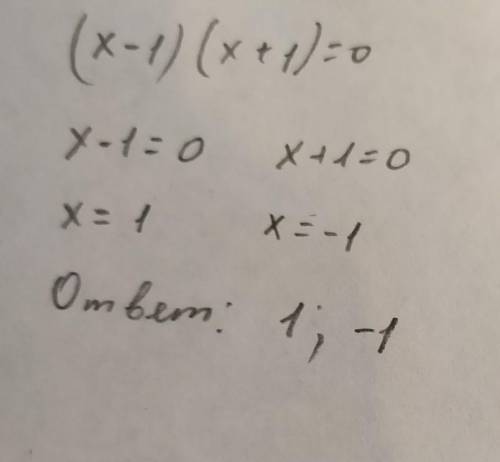 (x-1)(x+1)=0
x-1=0 x+1=0
x=1 x=-1
Ответ: 1; -1